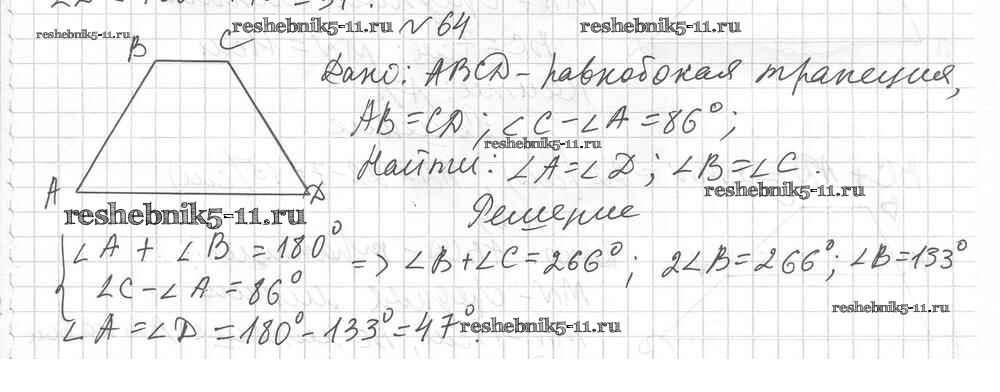 reshebnik5-11.ru
reshebnik5-11.ru
reshebnik5-11.ru
№ 64
B C
A D
Дано: ABCD - равнобокая трапеция,
AB = CD; ∠C - ∠A = 86°;
reshebnik5-11.ru
Найти: ∠A = ∠D; ∠B = ∠C.
reshebnik5-11.ru
reshebnik5-11.ru
Решение
∠A + ∠B = 180°
∠C - ∠A = 86°
=> ∠B + ∠C = 266°; 2∠B = 266°; ∠B = 133°
reshebnik5-11.ru
∠A = ∠D = 180° - 133° = 47°.
reshebnik5-11.ru